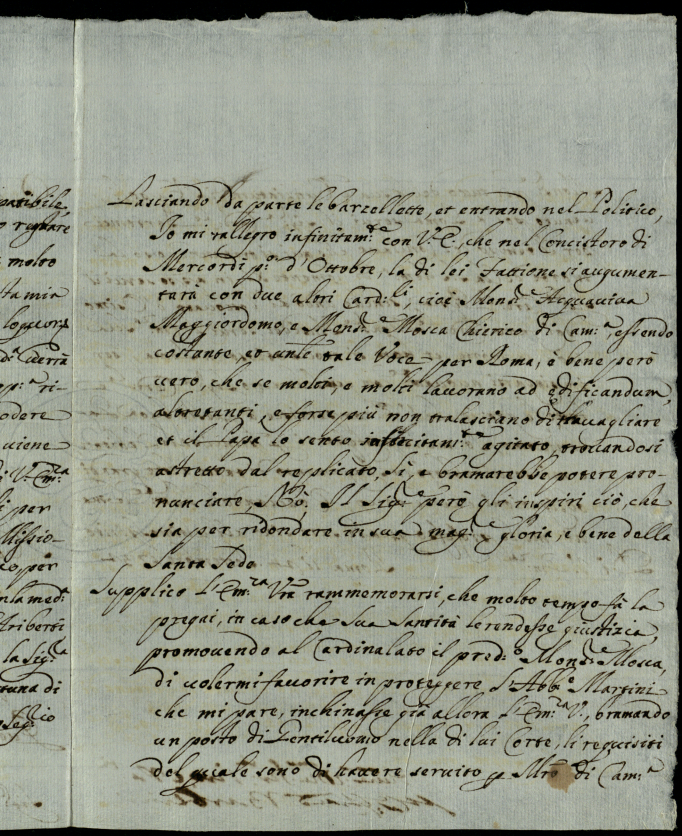 patibile,
molto
tta mia
loquor,
ri-
odere
viene
di V. Em.za
i per
Missio-
per
la med.
Ariberti
la Sig.ra
tuna di
Lasciando da parte le barzellette, et entrando nel Politico,
Io mi rallegro infinitam.te con V. E., che nel Concistoro di
Mercordì p.o d'Ottobre, la di lei Fattione si augumen-
tarà con due altri Card.li, cioè Mons.e Acquaviva
Maggiordomo, e Mons.e Mosca Chierico di Cam.a, essendo
costante, et tale Voce per Roma, è bene però
vero, che se molti, e molti lavorano ad ędificandum,
altretanti, e forse più non tralasciano di travagliare
et il Papa lo sento infinitam.te agitato, trovandosi
astretto dal replicato, Si, e bramarebbe potere pro-
nunciare, Nò; Il Sig.e però gli inspiri ciò, che
sia per ridondare in sua mag.e gloria, e bene della
Santa Sede
Supplico L'Em.za Vra rammemorarsi, che molto tempo fà la
pregai, in caso che Sua Santità le rendesse giustizia,
promovendo al Cardinalato il pred.o Mons.e Mosca,
di volermi favorire in proteggere l'Abb.e Martini
che mi pare, inchinasse già allora l'Em.za V., bramando
un posto di Gentilvomo nella di lui Corte, li requisiti
del quale sono di havere servito p Mro di Cam.a